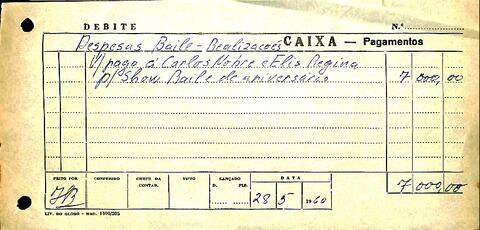 DEBITE N.º
Despesas Baile - Realizações CAIXA — Pagamentos
V/ pago á Carlos Nobre e Elis Regina
p/ Show Baile de aniversário 7 000,00
FEITO POR CONFERIDO CHEFE DA CONTAB. VISTO LANÇADO D. FLS. DATA
28 5 1960 7 000,00
LIV. DO GLOBO - MOD.